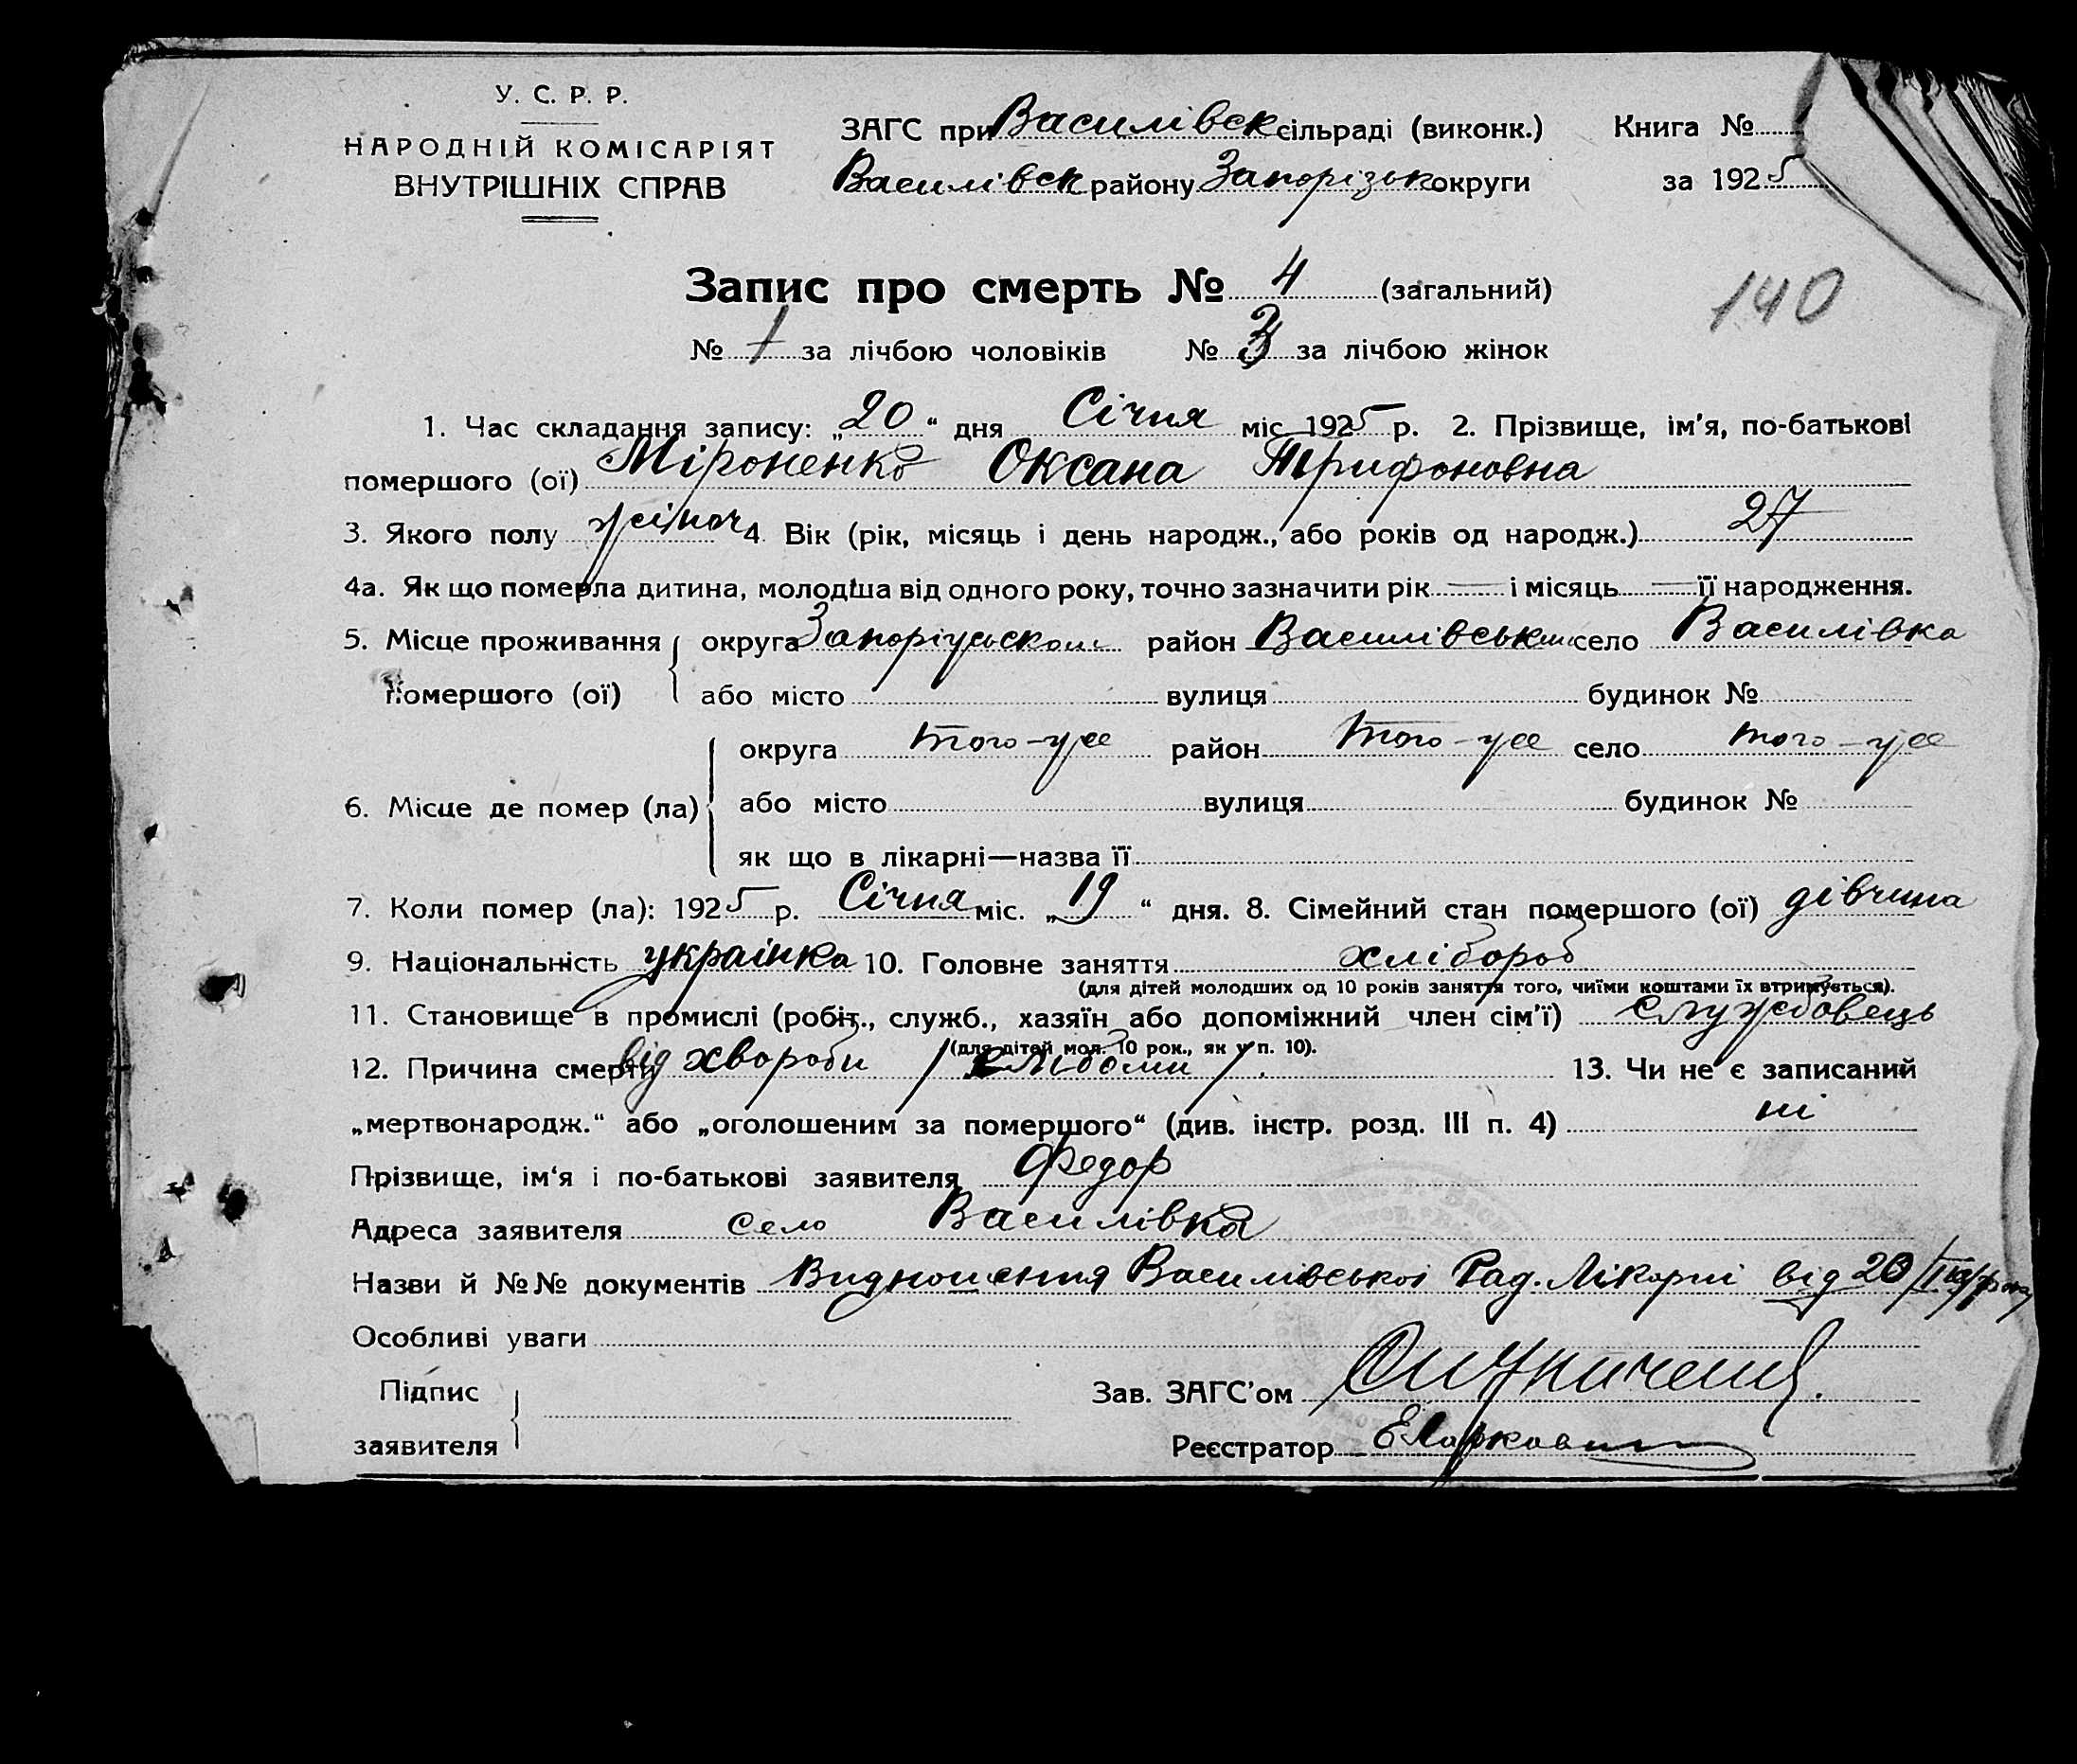 У. С. Р. Р.
НАРОДНІЙ КОМІСАРІЯТ
ВНУТРІШНІХ СПРАВ
ЗАГС при Василівск сільраді (виконк.) Книга №
Василівск району Запорізьк округи за 1925
Запис про смерть № 4 (загальний)
140
№ 1 за лічбою чоловіків № 3 за лічбою жінок
1. Час складання запису: „20“ дня Січня міс 1925 р. 2. Прізвище, ім'я, по-батькові
помершого (ої) Міроненко Оксана Трифоновна
3. Якого полу жіноч 4 Вік (рік, місяць і день народж., або років од народж.) 27
4а. Як що померла дитина, молодша від одного року, точно зазначити рік — і місяць — її народження.
5. Місце проживання округа район село Василівка
помершого (ої) або місто вулиця будинок №
округа того-же район того-же село того-же
6. Місце де помер (ла) або місто вулиця будинок №
як що в лікарні—назва її
7. Коли помер (ла): 1925 р. Січня міс. „19“ дня. 8. Сімейний стан помершого (ої) дівчина
9. Національність украінка 10. Головне заняття хлібороб
(для дітей молодших од 10 років заняття того, чиїми коштами їх втримується).
11. Становище в промислі (робіт., служб., хазяїн або допоміжний член сім'ї) службовець
(для дітей мол. 10 рок., як у п. 10).
12. Причина смерти від хвороби 13. Чи не є записаний
„мертвонародж.“ або „оголошеним за помершого“ (див. інстр. розд. III п. 4) ні
Прізвище, ім'я і по-батькові заявителя Федор
Адреса заявителя село Василівка
Назви й №№ документів Видношення Василівської Рад. Лікарні від 20/I
Особливі уваги
Підпис
заявителя
Зав. ЗАГС'ом
Реєстратор